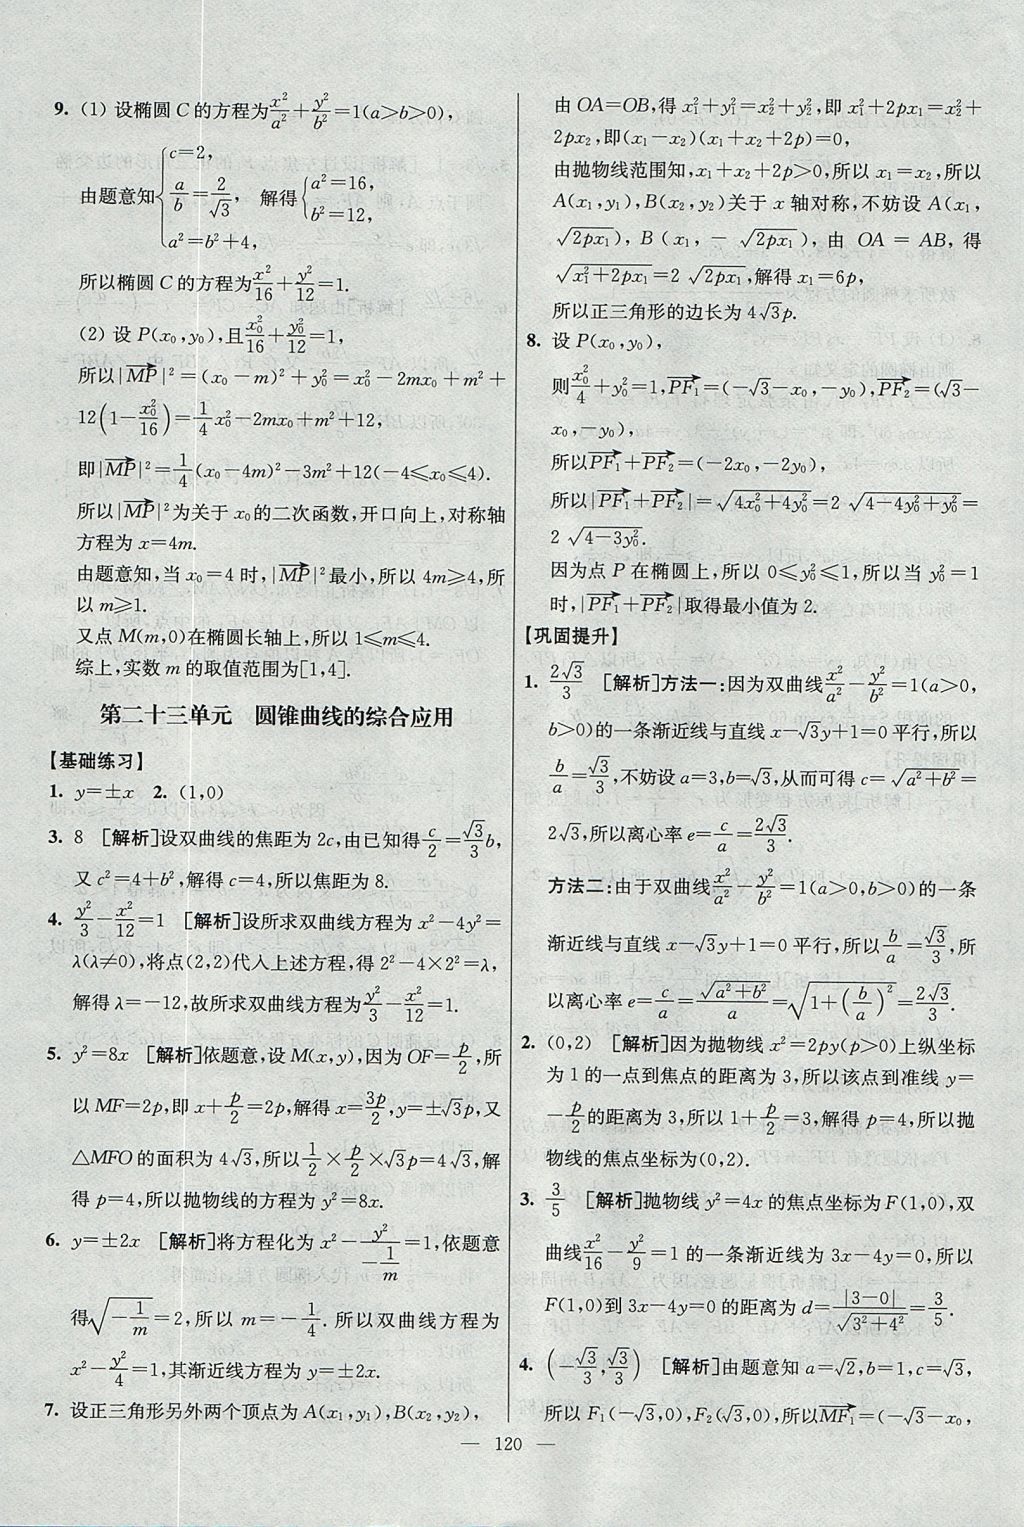 9. (1) 设椭圆 C 的方程为x²/a²+y²/b²=1(a>b>0),
由题意知{c=2, a/b=2/√3, a²=b²+4, 解得{a²=16, b²=12,
所以椭圆 C 的方程为x²/16+y²/12=1.
(2) 设 P(x₀,y₀),且x₀²/16+y₀²/12=1,
所以|MP→|²=(x₀-m)²+y₀²=x₀²-2mx₀+m²+
12(1-x₀²/16)=1/4x₀²-2mx₀+m²+12,
即|MP→|²=1/4(x₀-4m)²-3m²+12(-4≤x₀≤4).
所以|MP→|²为关于 x₀的二次函数,开口向上,对称轴
方程为 x=4m.
由题意知,当 x₀=4 时,|MP→|²最小,所以 4m≥4,所
以 m≥1.
又点 M(m,0)在椭圆长轴上,所以 1≤m≤4.
综上,实数 m 的取值范围为[1,4].
第二十三单元 圆锥曲线的综合应用
【基础练习】
1. y=±x 2. (1,0)
3. 8 [解析]设双曲线的焦距为 2c,由已知得c/2=√3/3b,
又 c²=4+b²,解得 c=4,所以焦距为 8.
4. y²/3-x²/12=1 [解析]设所求双曲线方程为 x²-4y²=
λ(λ≠0),将点(2,2)代入上述方程,得 2²-4×2²=λ,
解得 λ=-12,故所求双曲线方程为y²/3-x²/12=1.
5. y²=8x [解析]依题意,设 M(x,y),因为 OF=p/2,所
以 MF=2p,即 x+p/2=2p,解得 x=3p/2,y=±√3p,又
△MFO 的面积为 4√3,所以1/2×p/2×√3p=4√3,解
得 p=4,所以抛物线的方程为 y²=8x.
6. y=±2x [解析]将方程化为 x²-y²/(-1/m)=1,依题意
得√(-1/m)=2,所以 m=-1/4.所以双曲线方程为
x²-y²/4=1,其渐近线方程为 y=±2x.
7. 设正三角形另外两个顶点为 A(x₁,y₁),B(x₂,y₂),
由 OA=OB,得 x₁²+y₁²=x₂²+y₂²,即 x₁²+2px₁=x₂²+
2px₂,即(x₁-x₂)(x₁+x₂+2p)=0,
由抛物线范围知,x₁+x₂+2p>0,所以 x₁=x₂,所以
A(x₁,y₁),B(x₂,y₂)关于 x 轴对称,不妨设 A(x₁,
√(2px₁)),B(x₁,-√(2px₁)),由 OA=AB,得
√(x₁²+2px₁)=2√(2px₁),解得 x₁=6p,
所以正三角形的边长为 4√3p.
8. 设 P(x₀,y₀),
则x₀²/4+y₀²=1,PF₁→=(-√3-x₀,-y₀),PF₂→=(√3-
x₀,-y₀),
所以PF₁→+PF₂→=(-2x₀,-2y₀),
所以|PF₁→+PF₂→|=√(4x₀²+4y₀²)=2√(4-4y₀²+y₀²)=
2√(4-3y₀²).
因为点 P 在椭圆上,所以 0≤y₀²≤1,所以当 y₀²=1
时,|PF₁→+PF₂→|取得最小值为 2.
【巩固提升】
1. 2√3/3 [解析]方法一:因为双曲线x²/a²-y²/b²=1(a>0,
b>0)的一条渐近线与直线 x-√3y+1=0 平行,所以
b/a=√3/3,不妨设 a=3,b=√3,从而可得 c=√(a²+b²)=
2√3,所以离心率 e=c/a=2√3/3.
方法二:由于双曲线x²/a²-y²/b²=1(a>0,b>0)的一条
渐近线与直线 x-√3y+1=0 平行,所以b/a=√3/3,所
以离心率 e=c/a=√(a²+b²)/a=√(1+(b/a)²)=2√3/3.
2. (0,2) [解析]因为抛物线 x²=2py(p>0)上纵坐标
为 1 的一点到焦点的距离为 3,所以该点到准线 y=
-p/2的距离为 3,所以 1+p/2=3,解得 p=4,所以抛
物线的焦点坐标为(0,2).
3. 3/5 [解析]抛物线 y²=4x 的焦点坐标为 F(1,0),双
曲线x²/16-y²/9=1 的一条渐近线为 3x-4y=0,所以
F(1,0)到 3x-4y=0 的距离为 d=|3-0|/√(3²+4²)=3/5.
4. (-√3/3,√3/3) [解析]由题意知 a=√2,b=1,c=√3,
所以 F₁(-√3,0),F₂(√3,0),所以MF₁→=(-√3-x₀,
— 120 —